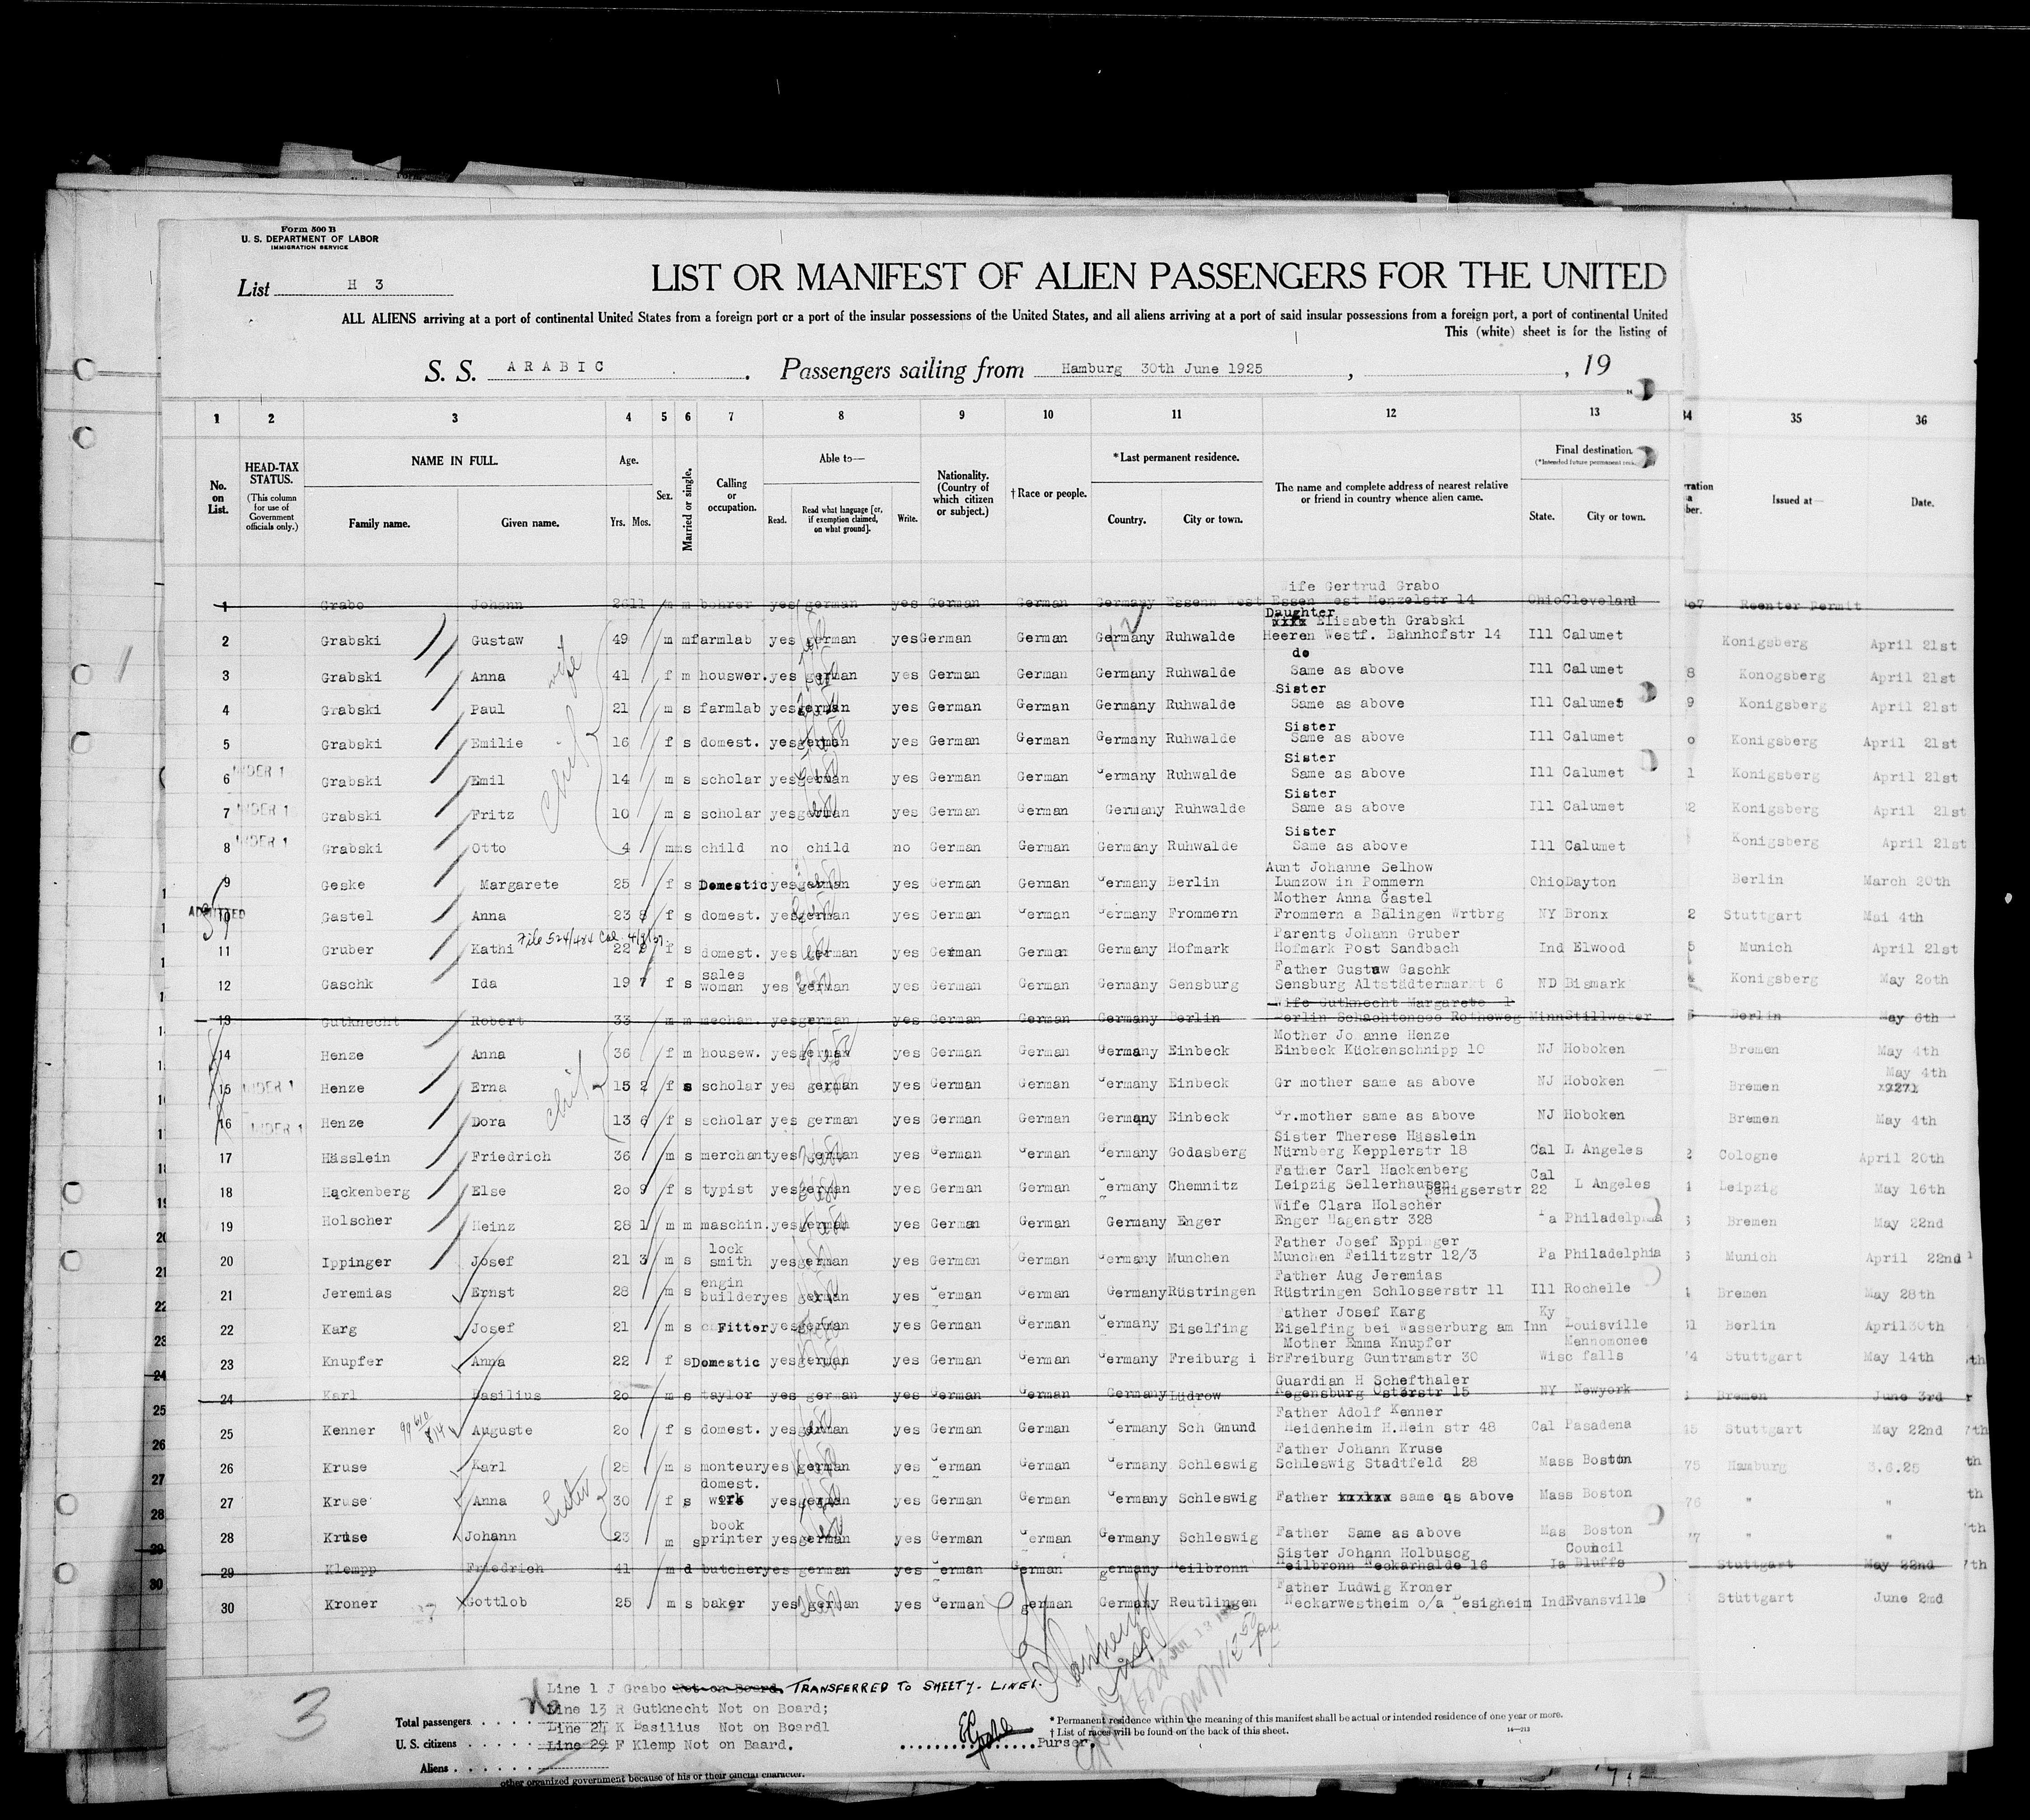 Form 500 B
U. S. DEPARTMENT OF LABOR
IMMIGRATION SERVICE
List H 3
LIST OR MANIFEST OF ALIEN PASSENGERS FOR THE UNITED
ALL ALIENS arriving at a port of continental United States from a foreign port or a port of the insular possessions of the United States, and all aliens arriving at a port of said insular possessions from a foreign port, a port of continental United
This (white) sheet is for the listing of
S. S. ARABIC. Passengers sailing from Hamburg 30th June 1925, , 19
1 2 3 4 5 6 7 8 9 10 11 12 13 34 35 36
No. on List. HEAD-TAX STATUS. (This column for use of Government officials only.) NAME IN FULL. Family name. Given name. Age. Yrs. Mos. Sex. Married or single. Calling or occupation. Able to— Read. Read what language [or, if exemption claimed, on what ground]. Write. Nationality. (Country of which citizen or subject.) † Race or people. *Last permanent residence. Country. City or town. The name and complete address of nearest relative or friend in country whence alien came. Final destination. (*Intended future permanent State. City or town. Issued at— Date.
ife Gertrud Grabo
1 Grabo Johann 26 11 m m bohrer yes german yes German German Germany Essenn West Essen West Menzelstr 14 Ohio Cleveland Reenter Permit
Daughter
Elisabeth Grabski
2 Grabski Gustaw 49 m m farmlab yes german yes German German Germany Ruhwalde Heeren Westf. Bahnhofstr 14 Ill Calumet Konigsberg April 21st
do
3 Grabski Anna wife 41 f m houswer. yes german yes German German Germany Ruhwalde Same as above Ill Calumet 8 Konogsberg April 21st
Sister
4 Grabski Paul 21 m s farmlab yes german yes German German Germany Ruhwalde Same as above Ill Calumet 9 Konigsberg April 21st
Sister
5 Grabski Emilie 16 f s domest. yes german yes German German Germany Ruhwalde Same as above Ill Calumet 0 Konigsberg April 21st
Sister
6 NDER 1 Grabski Emil 14 m s scholar yes german yes German German Germany Ruhwalde Same as above Ill Calumet 1 Konigsberg April 21st
Sister
7 NDER 1 Grabski Fritz 10 m s scholar yes german yes German German Germany Ruhwalde Same as above Ill Calumet 22 Konigsberg April 21st
Sister
8 NDER 1 Grabski Otto 4 m s child no child no German German Germany Ruhwalde Same as above Ill Calumet Konigsberg April 21st
Aunt Johanne Selhow
9 Geske Margarete 25 f s Domestic yes german yes German German Germany Berlin Lumzow in Pommern Ohio Dayton Berlin March 20th
Mother Anna Gastel
ADMITTED 10 Gastel Anna 23 8 f s domest. yes german yes German German Germany Frommern Frommern a Balingen Wrtbrg NY Bronx 2 Stuttgart Mai 4th
Parents Johann Gruber
11 Gruber Kathi 22 9 f s domest. yes german yes German German Germany Hofmark Hofmark Post Sandbach Ind Elwood 5 Munich April 21st
Father Gustaw Gaschk
12 Gaschk Ida 19 7 f s sales woman yes german yes German German Germany Sensburg Sensburg Altstädtermarkt 6 ND Bismark Konigsberg May 20th
Wife Gutknecht Margarete 1
13 Gutknecht Robert 33 m m mechan. yes german yes German German Germany Berlin Berlin Schachtensee Rotheweg Minn Stillwater Berlin May 6th
Mother Jo anne Henze
14 Henze Anna 36 f m housew. yes german yes German German Germany Einbeck Einbeck Kückenschnipp 10 NJ Hoboken Bremen May 4th
15 NDER 1 Henze Erna 15 2 f s scholar yes german yes German German Germany Einbeck Gr mother same as above NJ Hoboken Bremen May 4th
16 NDER 1 Henze Dora 13 6 f s scholar yes german yes German German Germany Einbeck Gr.mother same as above NJ Hoboken Bremen May 4th
Sister Therese Hässlein
17 Hässlein Friedrich 36 m s merchant yes german yes German German Germany Godasberg Nürnberg Kepplerstr 18 Cal L Angeles 2 Cologne April 20th
Father Carl Hackenberg
18 Hackenberg Else 20 9 f s typist yes german yes German German Germany Chemnitz Leipzig Sellerhausen 22 Cal L Angeles Leipzig May 16th
Wife Clara Holscher
19 Holscher Heinz 28 1 m m maschin. yes german yes German German Germany Enger Enger Hagenstr 328 Pa Philadelphia Bremen May 22nd
Father Josef Eppinger
20 Ippinger Josef 21 3 m s lock smith yes german yes German German Germany Munchen Munchen Feilitzstr 12/3 Pa Philadelphia Munich April 22nd
Father Aug Jeremias
21 Jeremias Ernst 28 m s engin builder yes german yes German German Germany Rüstringen Rüstringen Schlosserstr 11 Ill Rochelle Bremen May 28th
Father Josef Karg
22 Karg Josef 21 m s Fitter yes german yes German German Germany Eiselfing Eiselfing bei Wasserburg am Inn Ky Louisville Berlin April30th
Mother Emma Knupfer
23 Knupfer Anna 22 f s Domestic yes german yes German German Germany Freiburg i Br Freiburg Guntramstr 30 Wisc Mennomonee falls 74 Stuttgart May 14th
Guardian H Schefthaler
24 Karl Basilius 20 m s taylor yes german yes German German Germany Lüdrow Regensburg Osterstr 15 NY Newyork Bremen June 3rd
Father Adolf Kenner
25 Kenner Auguste 20 f s domest. yes german yes German German Germany Sch Gmund Heidenheim H.Hein str 48 Cal Pasadena Stuttgart May 22nd
Father Johann Kruse
26 Kruse Karl m s monteur yes german yes German German Germany Schleswig Schleswig Stadtfeld 28 Mass Boston 75 Hamburg 3.6.25
27 Kruse Anna Sister 30 f s domest. work yes german yes German German Germany Schleswig Father xxxxxx same as above Mass Boston 76 " "
28 Kruse Johann 23 m s book printer yes german yes German German Germany Schleswig Father Same as above Mas Boston 77 " "
Sister Johann Holbuscg
29 Klempp Friedrich 41 m d butcher yes german yes German German germany Heilbronn Heilbronn Neckarhalde 16 Ia Council Bluffs Stuttgart May 22nd
Father Ludwig Kroner
30 Kroner Gottlob 25 m s baker yes german yes German german Germany Reutlingen Neckarwestheim o/a Besigheim Ind Evansville Stuttgart June 2nd
3
Line 1 J Grabo Not on Board. TRANSFERRED TO SHEET 7. LINE 1.
Line 13 R Gutknecht Not on Board;
Line 24 K Basilius Not on Boardl
Line 29 F Klemp Not on Baard.
Total passengers
U. S. citizens
Aliens
Purser.
* Permanent residence within the meaning of this manifest shall be actual or intended residence of one year or more.
† List of races will be found on the back of this sheet.
14—213
other organized government because of his or their official character.